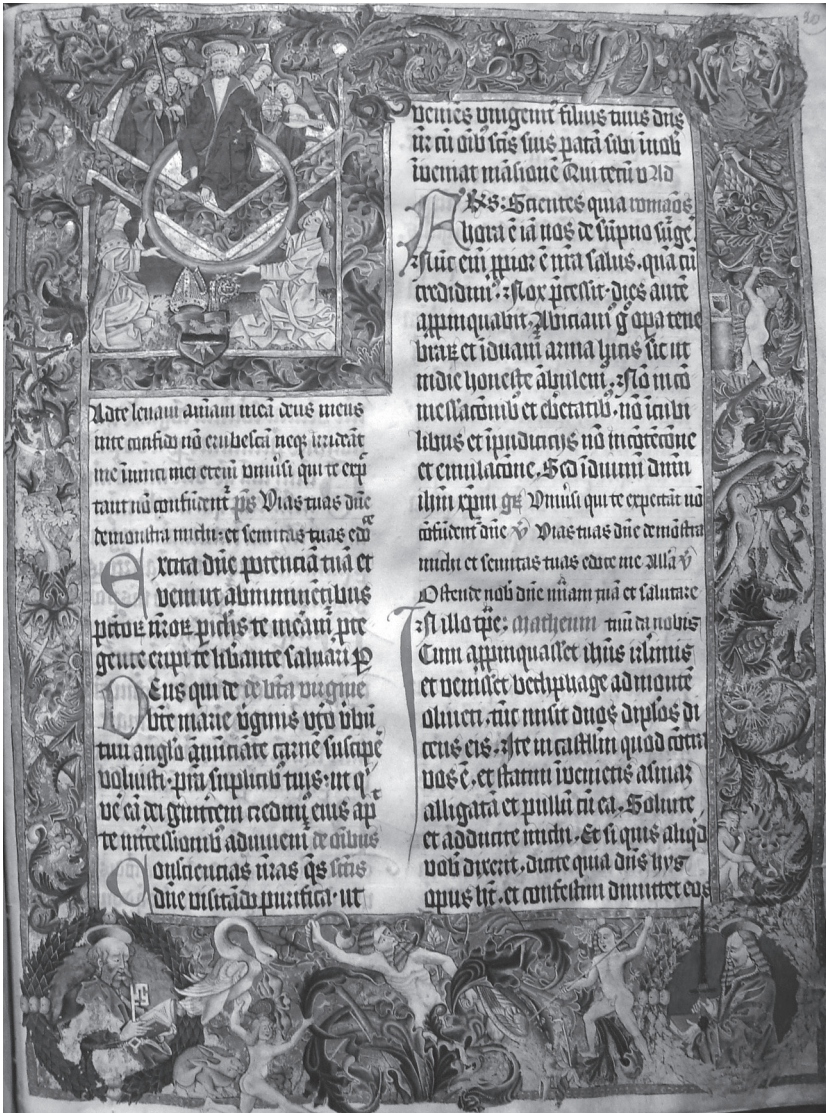 Ad te levavi aīam meā deus meus
in te confido nō erubescā neqʒ irrideāt
me inimici mei eteniʒ univsi qui te exp
tant nō confūdent² ps Vias tuas dnē
demonstra michi: et semitas tuas edo
ce
Excita dnē potenciā tuā et
veni ut ab imminētibus
pctoꝝ nr̄oꝝ pīclis te meam² pte
gente eripi te libante salvari P
Deus qui de de btā virgine
bte marie vgnis vto vbū
tuu anglo anūciāte carnē suscipe
voluisti· pta suplicib² tuis· ut q²
vē eā dei genitrcem credim² eius ap
te intcessionib² adiuvem² de oībus
Consciencias nr̄as qs sctis
dnē visitādo purifica· ut
veniēs unigenit² filius tuus dns
nr cū oīb² scīs suis patā sibi in nob
inveniat mansionē Qui tecū v Ad
Fr̄s: Scientes quia romanos
hora ē iā nos de sompno sūge
Nūc eni ppior ē nr̄a salus. quā cū
credidim²: Nox pcessit· dies autē
appinquabit. Abiciam² g opa tene
braꝝ et iduam² arma lucis sic ut
in die honeste ābulem²: Nō in cō
messacōnib² et ebrietatib². nō in cubi
libus et ipudicicijs nō in cōtēcōne
et emulacōne. Sed iduimi dnm
ihm xpm gr Univsi qui te expectāt nō
cōfūdent² dnē v Vias tuas dnē demōstra
michi et semitas tuas edoce me Alla v
Ostende nob dnē miām tuā et salutare
In illo tpe: Matheum tuū da nobis
Cum appinquasset ihūs irlimis
et venisset bethphage ad montē
oliveti. tūc misit duos displos di
cens eis. Ite in castllm quod cōtra
vos ē. et statim invenietis asinaʒ
alligatā et pullū cū ea. Solvite
et adducite michi. Et si quis aliqd
vob dixerit. dicite quia dns hijs
opus ht. et confestim dimittet eos
20